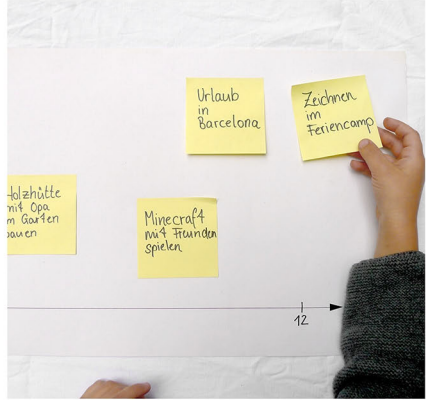 Urlaub
in
Barcelona
Zeichnen
im
Feriencamp
Holzhütte
mit Opa
im Garten
bauen
Minecraft
mit Freunden
spielen
12